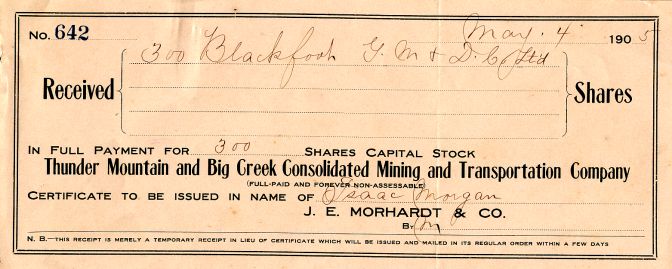 No. 642 May. 4 1905
300 Blackfoot G. M & D. Co Ltd
Received Shares
IN FULL PAYMENT FOR 300 SHARES CAPITAL STOCK
Thunder Mountain and Big Creek Consolidated Mining and Transportation Company
(FULL-PAID AND FOREVER NON-ASSESSABLE)
CERTIFICATE TO BE ISSUED IN NAME OF Isaac Morgan
J. E. MORHARDT & CO.
BY M
N. B.—THIS RECEIPT IS MERELY A TEMPORARY RECEIPT IN LIEU OF CERTIFICATE WHICH WILL BE ISSUED AND MAILED IN ITS REGULAR ORDER WITHIN A FEW DAYS